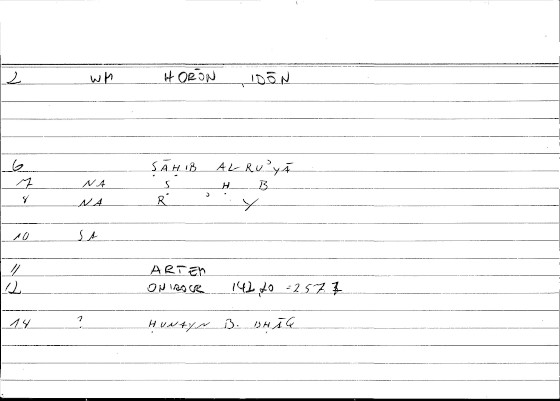 2 WM HORŌN , IDŌN
6 ṢĀḤIB AL-RUʾYĀ
7 NA Ṣ Ḥ B
8 NA R ʾ Y
10 SA
11 ARTEM
12 ONIROCR 142,20 -257,7
14 ? ḤUNAYN B.